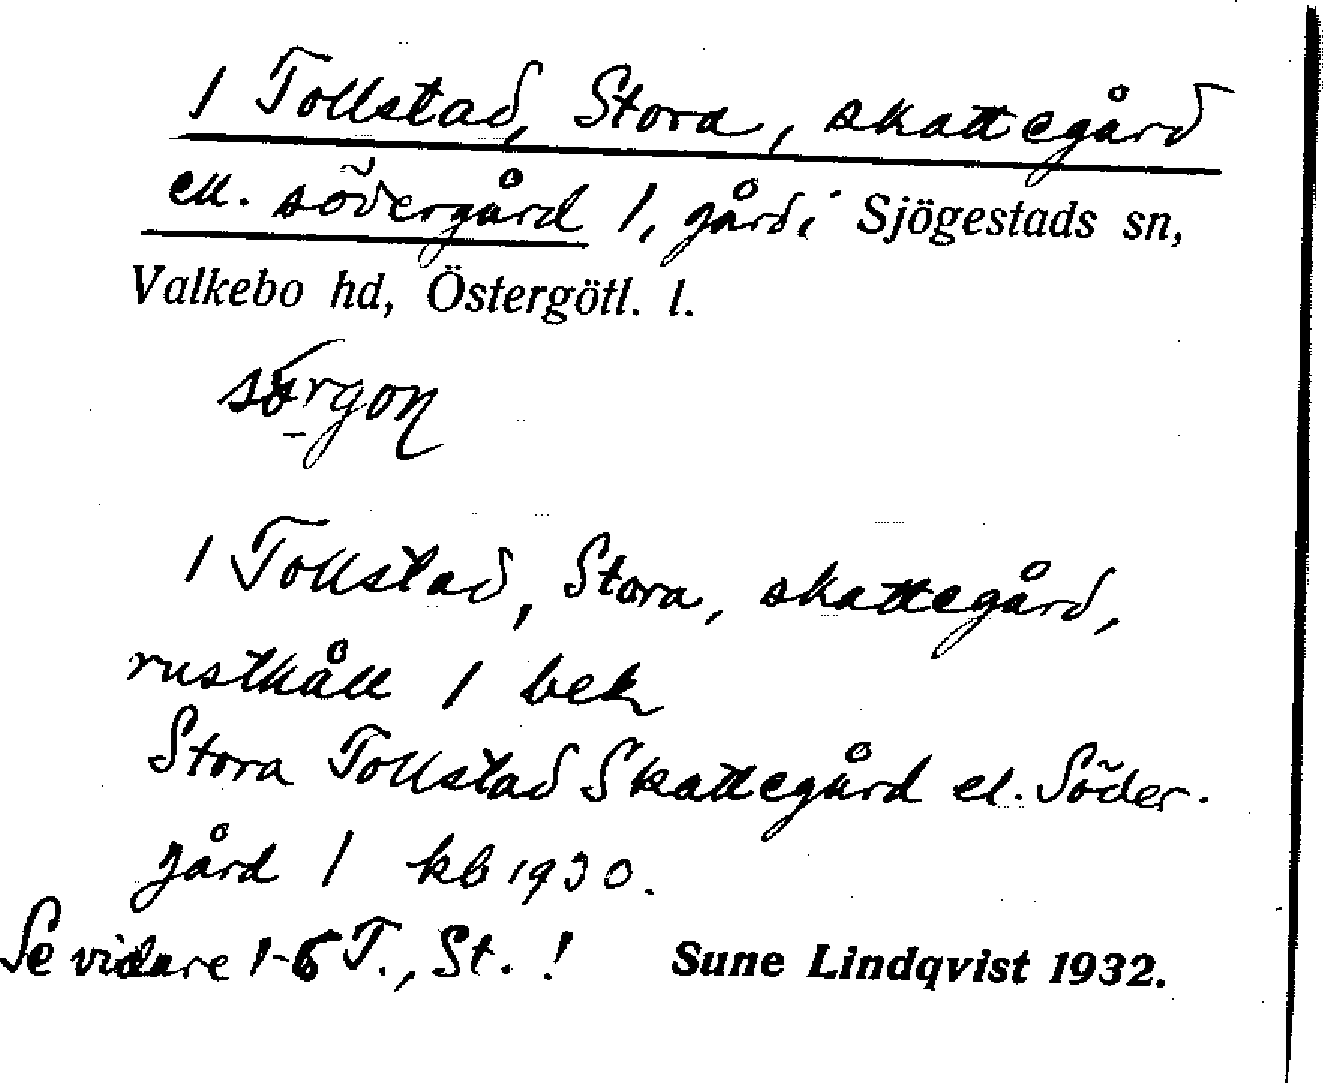 1 Tollstad, Stora, skattegård
ell. södergård 1, gård i Sjögestads sn,
Valkebo hd, Östergötl. l.
1 Tollstad, Stora, skattegård,
rusthåll 1 bek
Stora Tollstad Skattegård el. Söder-
gård 1 kb 1930.
Se vidare 1-6 T., St. !
Sune Lindqvist 1932.